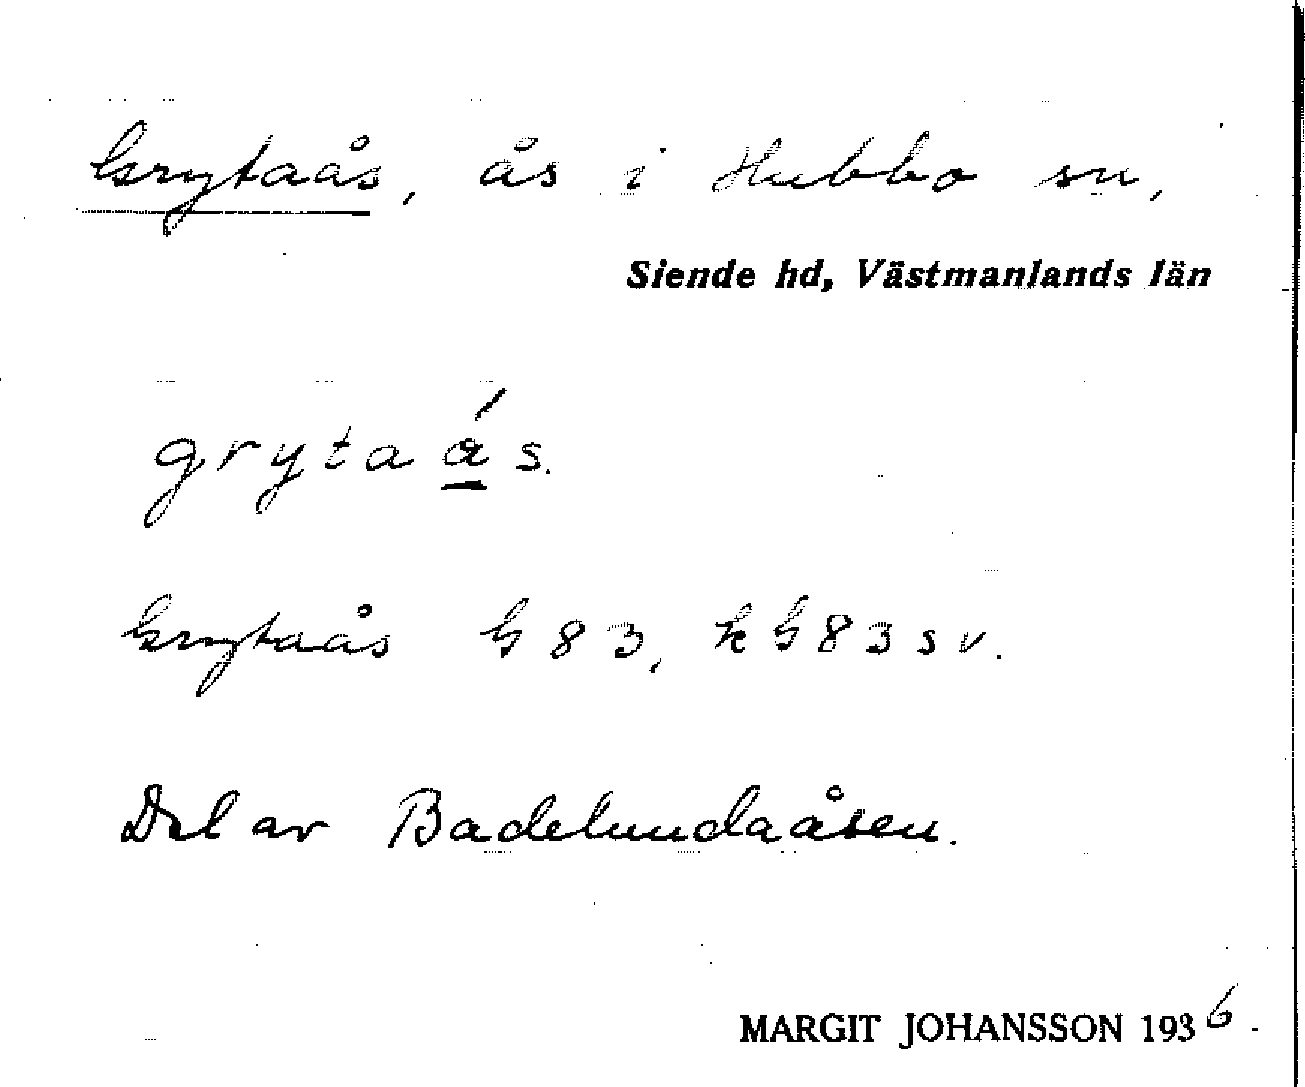 Grytaås, ås i Hubbo sn,
Siende hd, Västmanlands län
grytaá̱s.
Grytaås G 83, k G 83 s v.
Del av Badelundaåsen.
MARGIT JOHANSSON 1936.